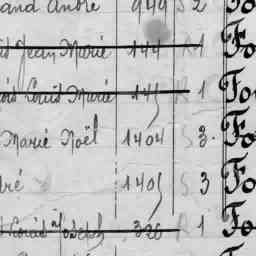 and André 949 S 2 Fo
is Jean Marie 144 R 1 Fo
ois Louis Marie 145 R 1 Fo
Marie Noël 1404 S 3 Fo
dré 1405 S 3 Fo
Louis Joseph 320 R 1 Fo